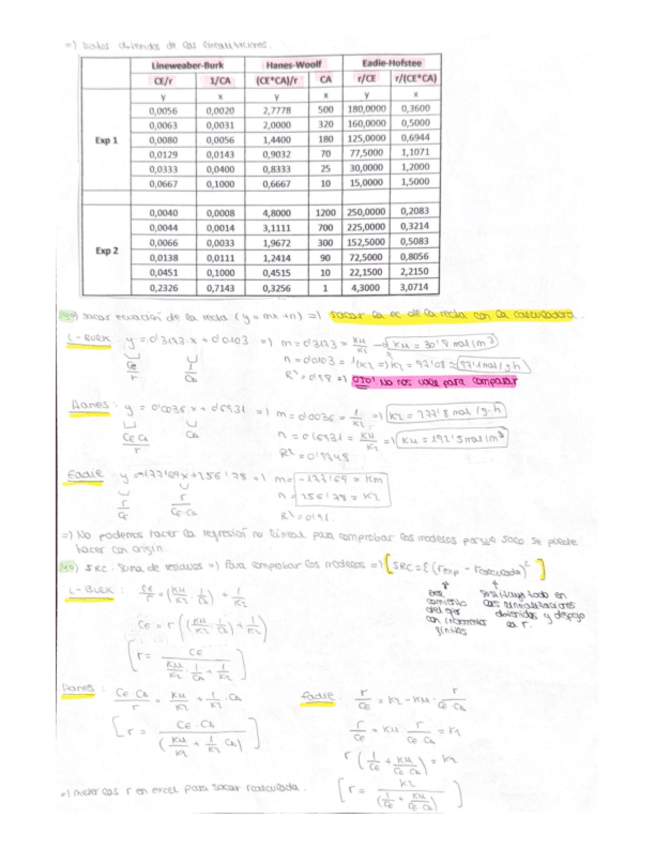 =) Datos obtenidos de las linealizaciones.
Lineweaber-Burk Hanes-Woolf Eadie-Hofstee
CE/r 1/CA (CE*CA)/r CA r/CE r/(CE*CA)
y x y x y x
Exp 1
0,0056 0,0020 2,7778 500 180,0000 0,3600
0,0063 0,0031 2,0000 320 160,0000 0,5000
0,0080 0,0056 1,4400 180 125,0000 0,6944
0,0129 0,0143 0,9032 70 77,5000 1,1071
0,0333 0,0400 0,8333 25 30,0000 1,2000
0,0667 0,1000 0,6667 10 15,0000 1,5000
Exp 2
0,0040 0,0008 4,8000 1200 250,0000 0,2083
0,0044 0,0014 3,1111 700 225,0000 0,3214
0,0066 0,0033 1,9672 300 152,5000 0,5083
0,0138 0,0111 1,2414 90 72,5000 0,8056
0,0451 0,1000 0,4515 10 22,1500 2,2150
0,2326 0,7143 0,3256 1 4,3000 3,0714
sacar ecuación de la recta (y = mx + n) =) sacar la ec de la recta con la calculadora.
L-Burk: y = 0'3173x + 0'0103 =) m = 0'3173 = KM/K2 → KM = 30'8 mol/m³
CE/r 1/CA n = 0'0103 = 1/K2 =) K2 = 97'08
R² = 0'98 =) OJO! No nos vale para comparar
Hanes: y = 0'0036x + 0'6931 =) m = 0'0036 = 1/K2 =) K2 = 277'8 mol/g·h
CE CA/r CA n = 0'6931 = KM/K2 =) KM = 192'5 mol/m³
R² = 0'9248
Eadie y = -177'69x + 256'78 =) m = -177'69 = KM
r/CE r/CE·CA n = 256'78 = K2
R² = 0'91.
=) No podemos hacer la regresión no lineal para comprobar los modelos porque solo se puede
hacer con origin.
SRC: suma de residuos =) Para comprobar los modelos =) [SRC = Σ (rexp - rcalculada)²]
L-Burk: CE/r = (KM/K2 · 1/CA) + 1/K2
CE = r ((KM/K2 · 1/CA) + 1/K2)
[r = CE / (KM/K2 · 1/CA + 1/K2)]
Hanes: CE CA/r = KM/K2 + 1/K2 · CA
[r = CE·CA / (KM/K2 + 1/K2 CA)]
Eadie: r/CE = K2 - KM · r/CE·CA
r/CE + KM r/CE CA = K2
r (1/CE + KM/CE CA) = K2
[r = K2 / (1/CE + KM/CE·CA)]
=) meter las r en excel para sacar rcalculada.